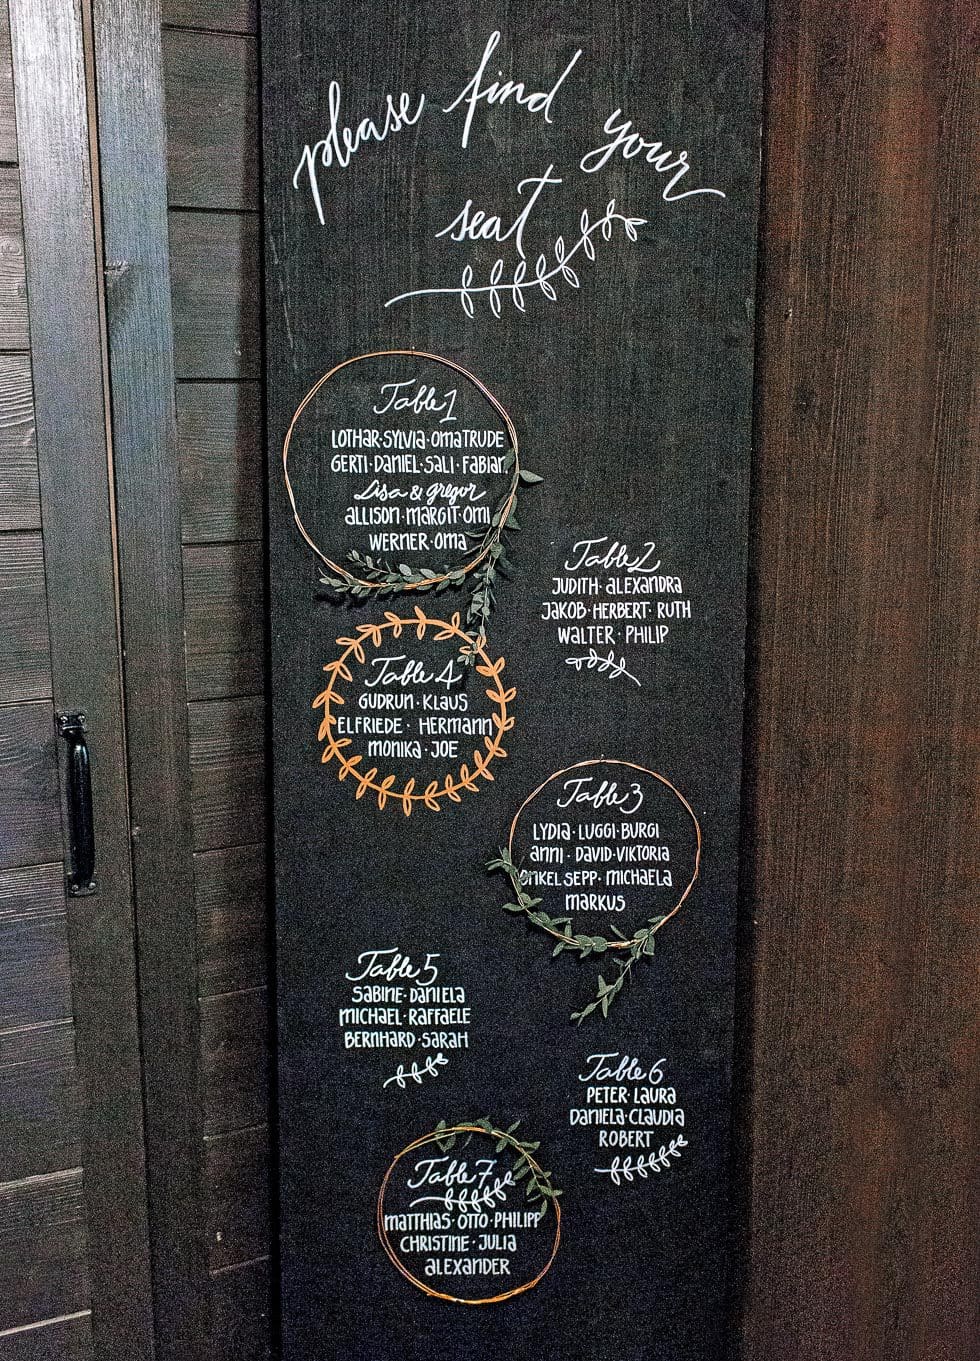 please find your
seat
Table 1
LOTHAR·SYLVIA·OMA TRUDE
GERTI·DANIEL·SALI·FABIAN
Lisa & gregor
ALLISON·MARGIT·OMI
WERNER·OMA
Table 2
JUDITH·ALEXANDRA
JAKOB·HERBERT·RUTH
WALTER·PHILIP
Table 4
GUDRUN·KLAUS
ELFRIEDE·HERMANN
MONIKA·JOE
Table 3
LYDIA·LUGGI·BURGI
ANNI·DAVID·VIKTORIA
ONKEL SEPP·MICHAELA
MARKUS
Table 5
SABINE·DANIELA
MICHAEL·RAFFAELE
BERNHARD·SARAH
Table 6
PETER·LAURA
DANIELA·CLAUDIA
ROBERT
Table 7
MATTHIAS·OTTO·PHILIPP
CHRISTINE·JULIA
ALEXANDER